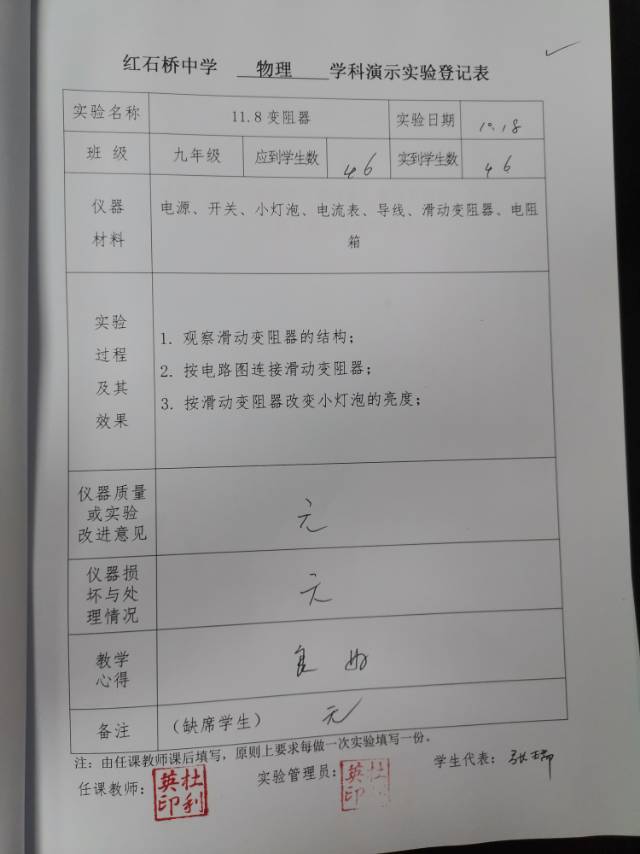 红石桥中学 物理 学科演示实验登记表
实验名称 11.8 变阻器 实验日期 10.18
班 级 九年级 应到学生数 46 实到学生数 46
仪器
材料
电源、开关、小灯泡、电流表、导线、滑动变阻器、电阻
箱
实验
过程
及其
效果
1. 观察滑动变阻器的结构；
2. 按电路图连接滑动变阻器；
3. 按滑动变阻器改变小灯泡的亮度；
仪器质量
或实验
改进意见
无
仪器损
坏与处
理情况
无
教学
心得
良好
备注 （缺席学生） 无
注：由任课教师课后填写，原则上要求每做一次实验填写一份。
任课教师： 杜利英印 实验管理员： 杜 英印 学生代表： 张瑞